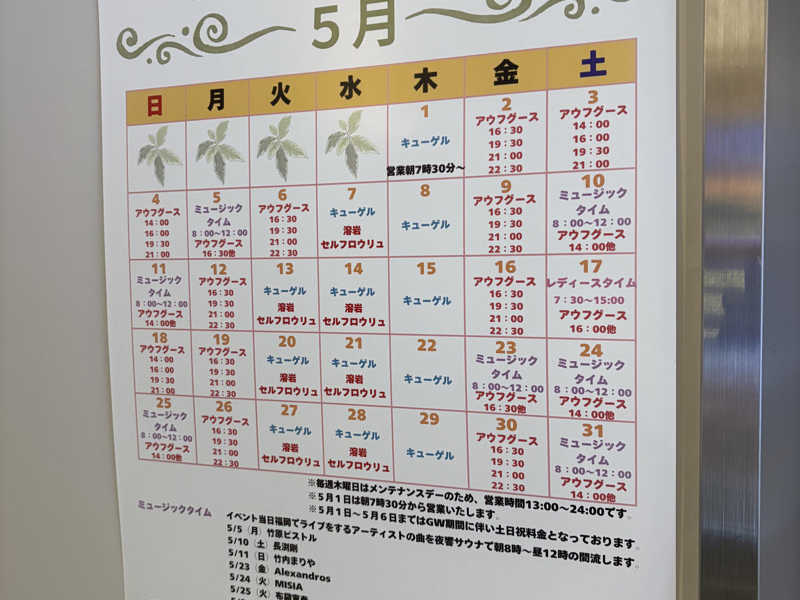 5月
日 月 火 水 木 金 土
1
キューゲル
営業朝7時30分～
2
アウフグース
16：30
19：30
21：00
22：30
3
アウフグース
14：00
16：00
19：30
21：00
4
アウフグース
14：00
16：00
19：30
21：00
5
ミュージック
タイム
8：00～12：00
アウフグース
16：30他
6
アウフグース
16：30
19：30
21：00
22：30
7
キューゲル
溶岩
セルフロウリュ
8
キューゲル
9
アウフグース
16：30
19：30
21：00
22：30
10
ミュージック
タイム
8：00～12：00
アウフグース
14：00他
11
ミュージック
タイム
8：00～12：00
アウフグース
14：00他
12
アウフグース
16：30
19：30
21：00
22：30
13
キューゲル
溶岩
セルフロウリュ
14
キューゲル
溶岩
セルフロウリュ
15
キューゲル
16
アウフグース
16：30
19：30
21：00
22：30
17
レディースタイム
7：30～15:00
アウフグース
16：00他
18
アウフグース
14：00
16：00
19：30
21：00
19
アウフグース
16：30
19：30
21：00
22：30
20
キューゲル
溶岩
セルフロウリュ
21
キューゲル
溶岩
セルフロウリュ
22
キューゲル
23
ミュージック
タイム
8：00～12：00
アウフグース
16：30他
24
ミュージック
タイム
8：00～12：00
アウフグース
14：00他
25
ミュージック
タイム
8：00～12：00
アウフグース
14：00他
26
アウフグース
16：30
19：30
21：00
22：30
27
キューゲル
溶岩
セルフロウリュ
28
キューゲル
溶岩
セルフロウリュ
29
キューゲル
30
アウフグース
16：30
19：30
21：00
22：30
31
ミュージック
タイム
8：00～12：00
アウフグース
14：00他
※毎週木曜日はメンテナンスデーのため、営業時間13:00～24:00です。
※５月１日は朝7時30分から営業いたします。
※５月１日～５月６日まではGW期間に伴い土日祝料金となっております。
ミュージックタイム
イベント当日福岡でライブをするアーティストの曲を夜響サウナで朝8時～昼12時の間流します。
5/5（月）竹原ピストル
5/10（土）長渕剛
5/11（日）竹内まりや
5/23（金）Alexandros
5/24（火）MISIA
5/25（火）布袋寅泰